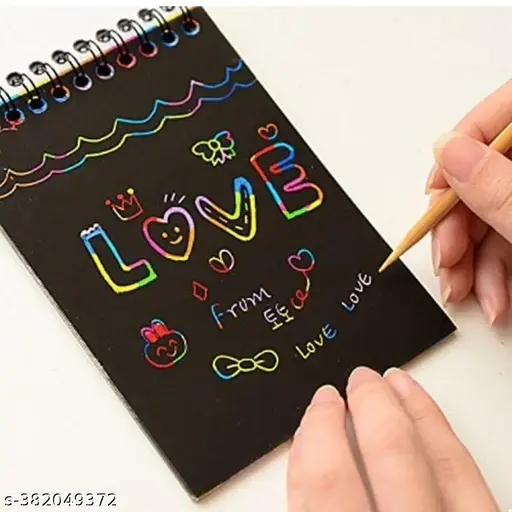 LOVE
From
토토
LOVE LOVE
s-382049372